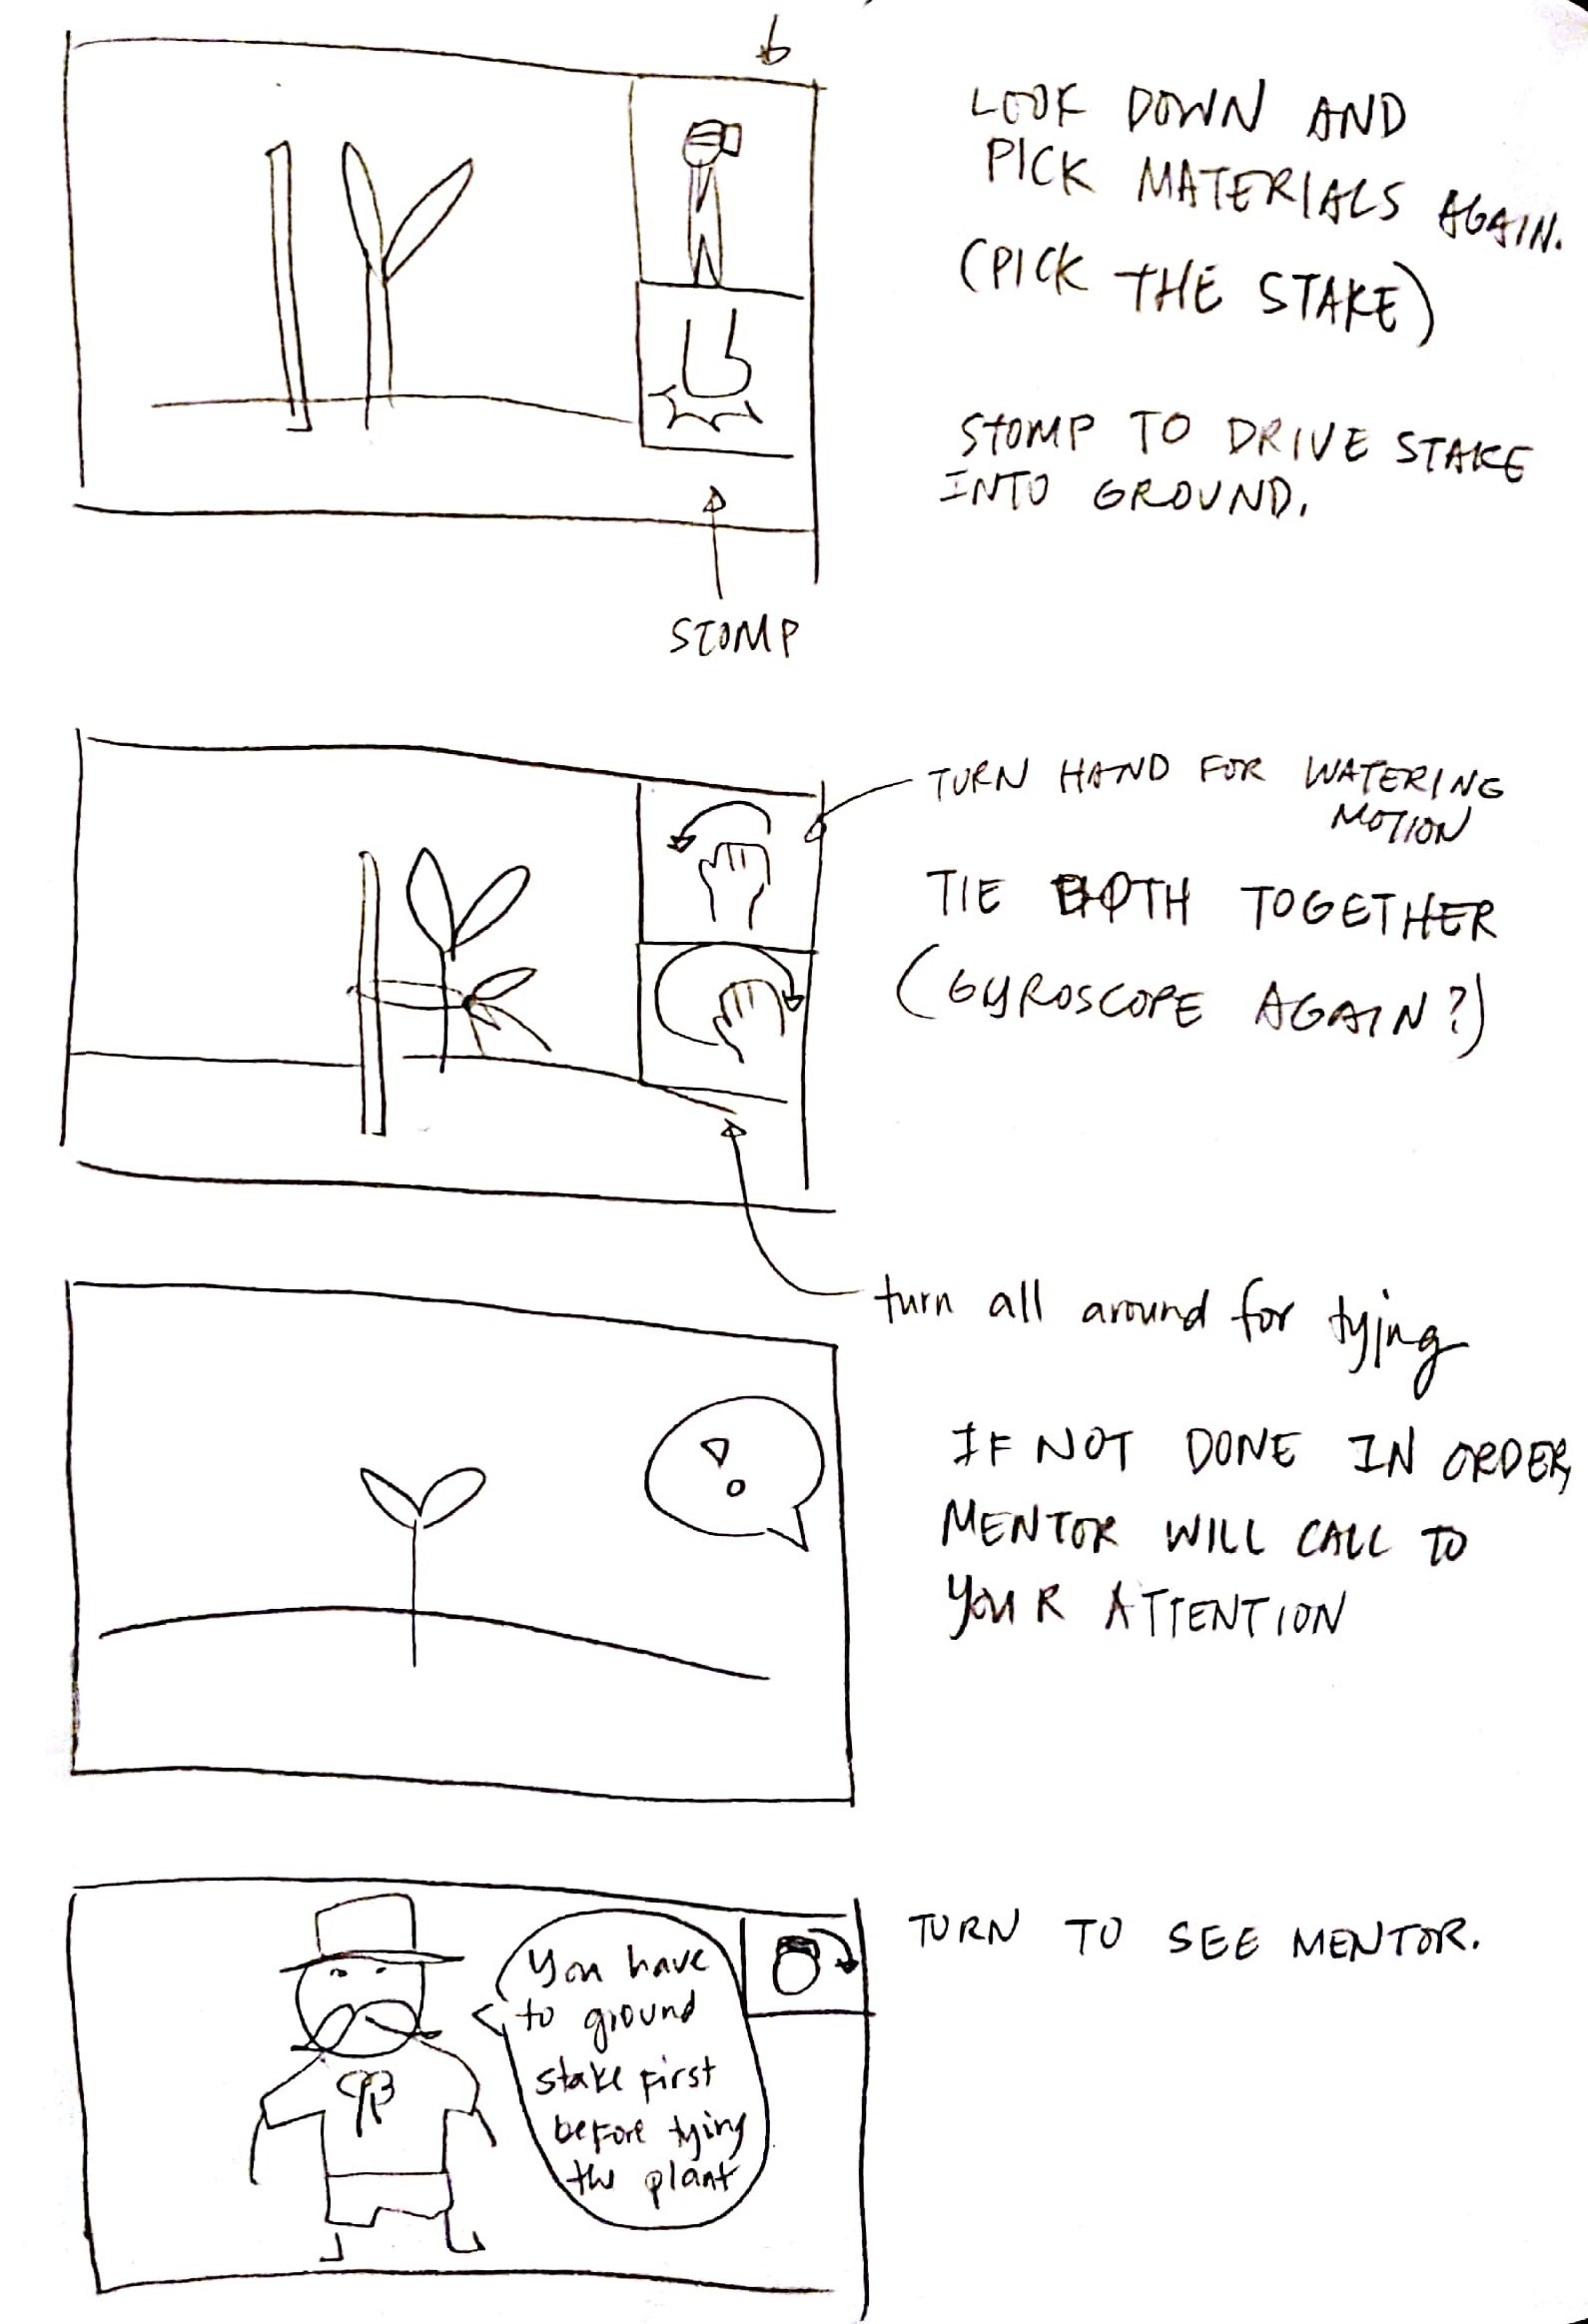 LOOK DOWN AND
PICK MATERIALS AGAIN.
(PICK THE STAKE)
STOMP TO DRIVE STAKE
INTO GROUND.
STOMP
TURN HAND FOR WATERING
MOTION
TIE BOTH TOGETHER
(GYROSCOPE AGAIN?)
turn all around for tying
IF NOT DONE IN ORDER,
MENTOR WILL CALL TO
YOUR ATTENTION
TURN TO SEE MENTOR.
You have
to ground
stake first
before tying
the plant